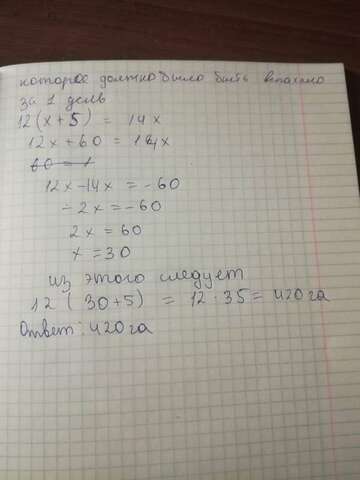 которое должно было быть вспахано
за 1 день
12(x+5) = 14x
12x+60 = 14x
60 = 1
12x-14x = -60
-2x = -60
2x = 60
x = 30
из этого следует
12(30+5) = 12·35 = 420 га
Ответ: 420 га